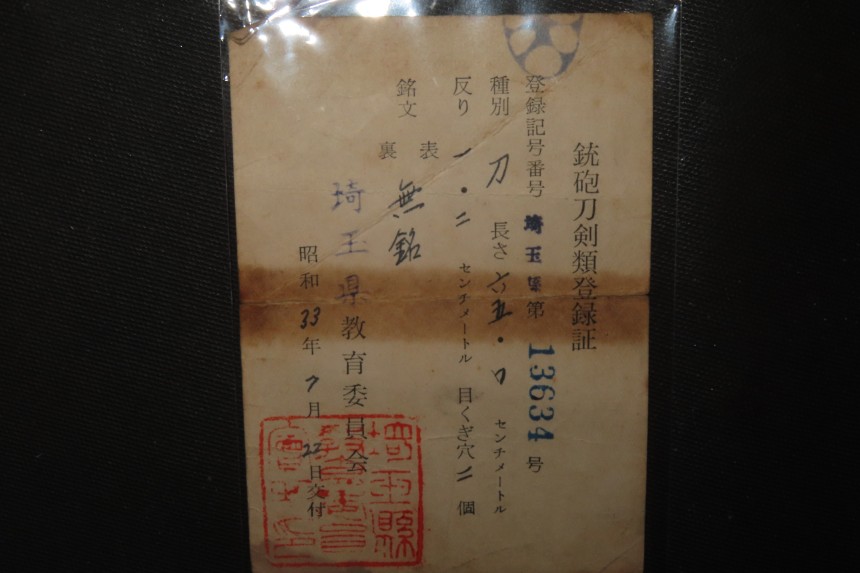 銃砲刀剣類登録証
登録記号番号 埼玉県第13634号
種別 刀 長さ 六五・〇 センチメートル
反り 一・二 センチメートル 目くぎ穴 二 個
銘文 表 無銘
裏
埼玉県教育委員会
昭和33年7月22日交付